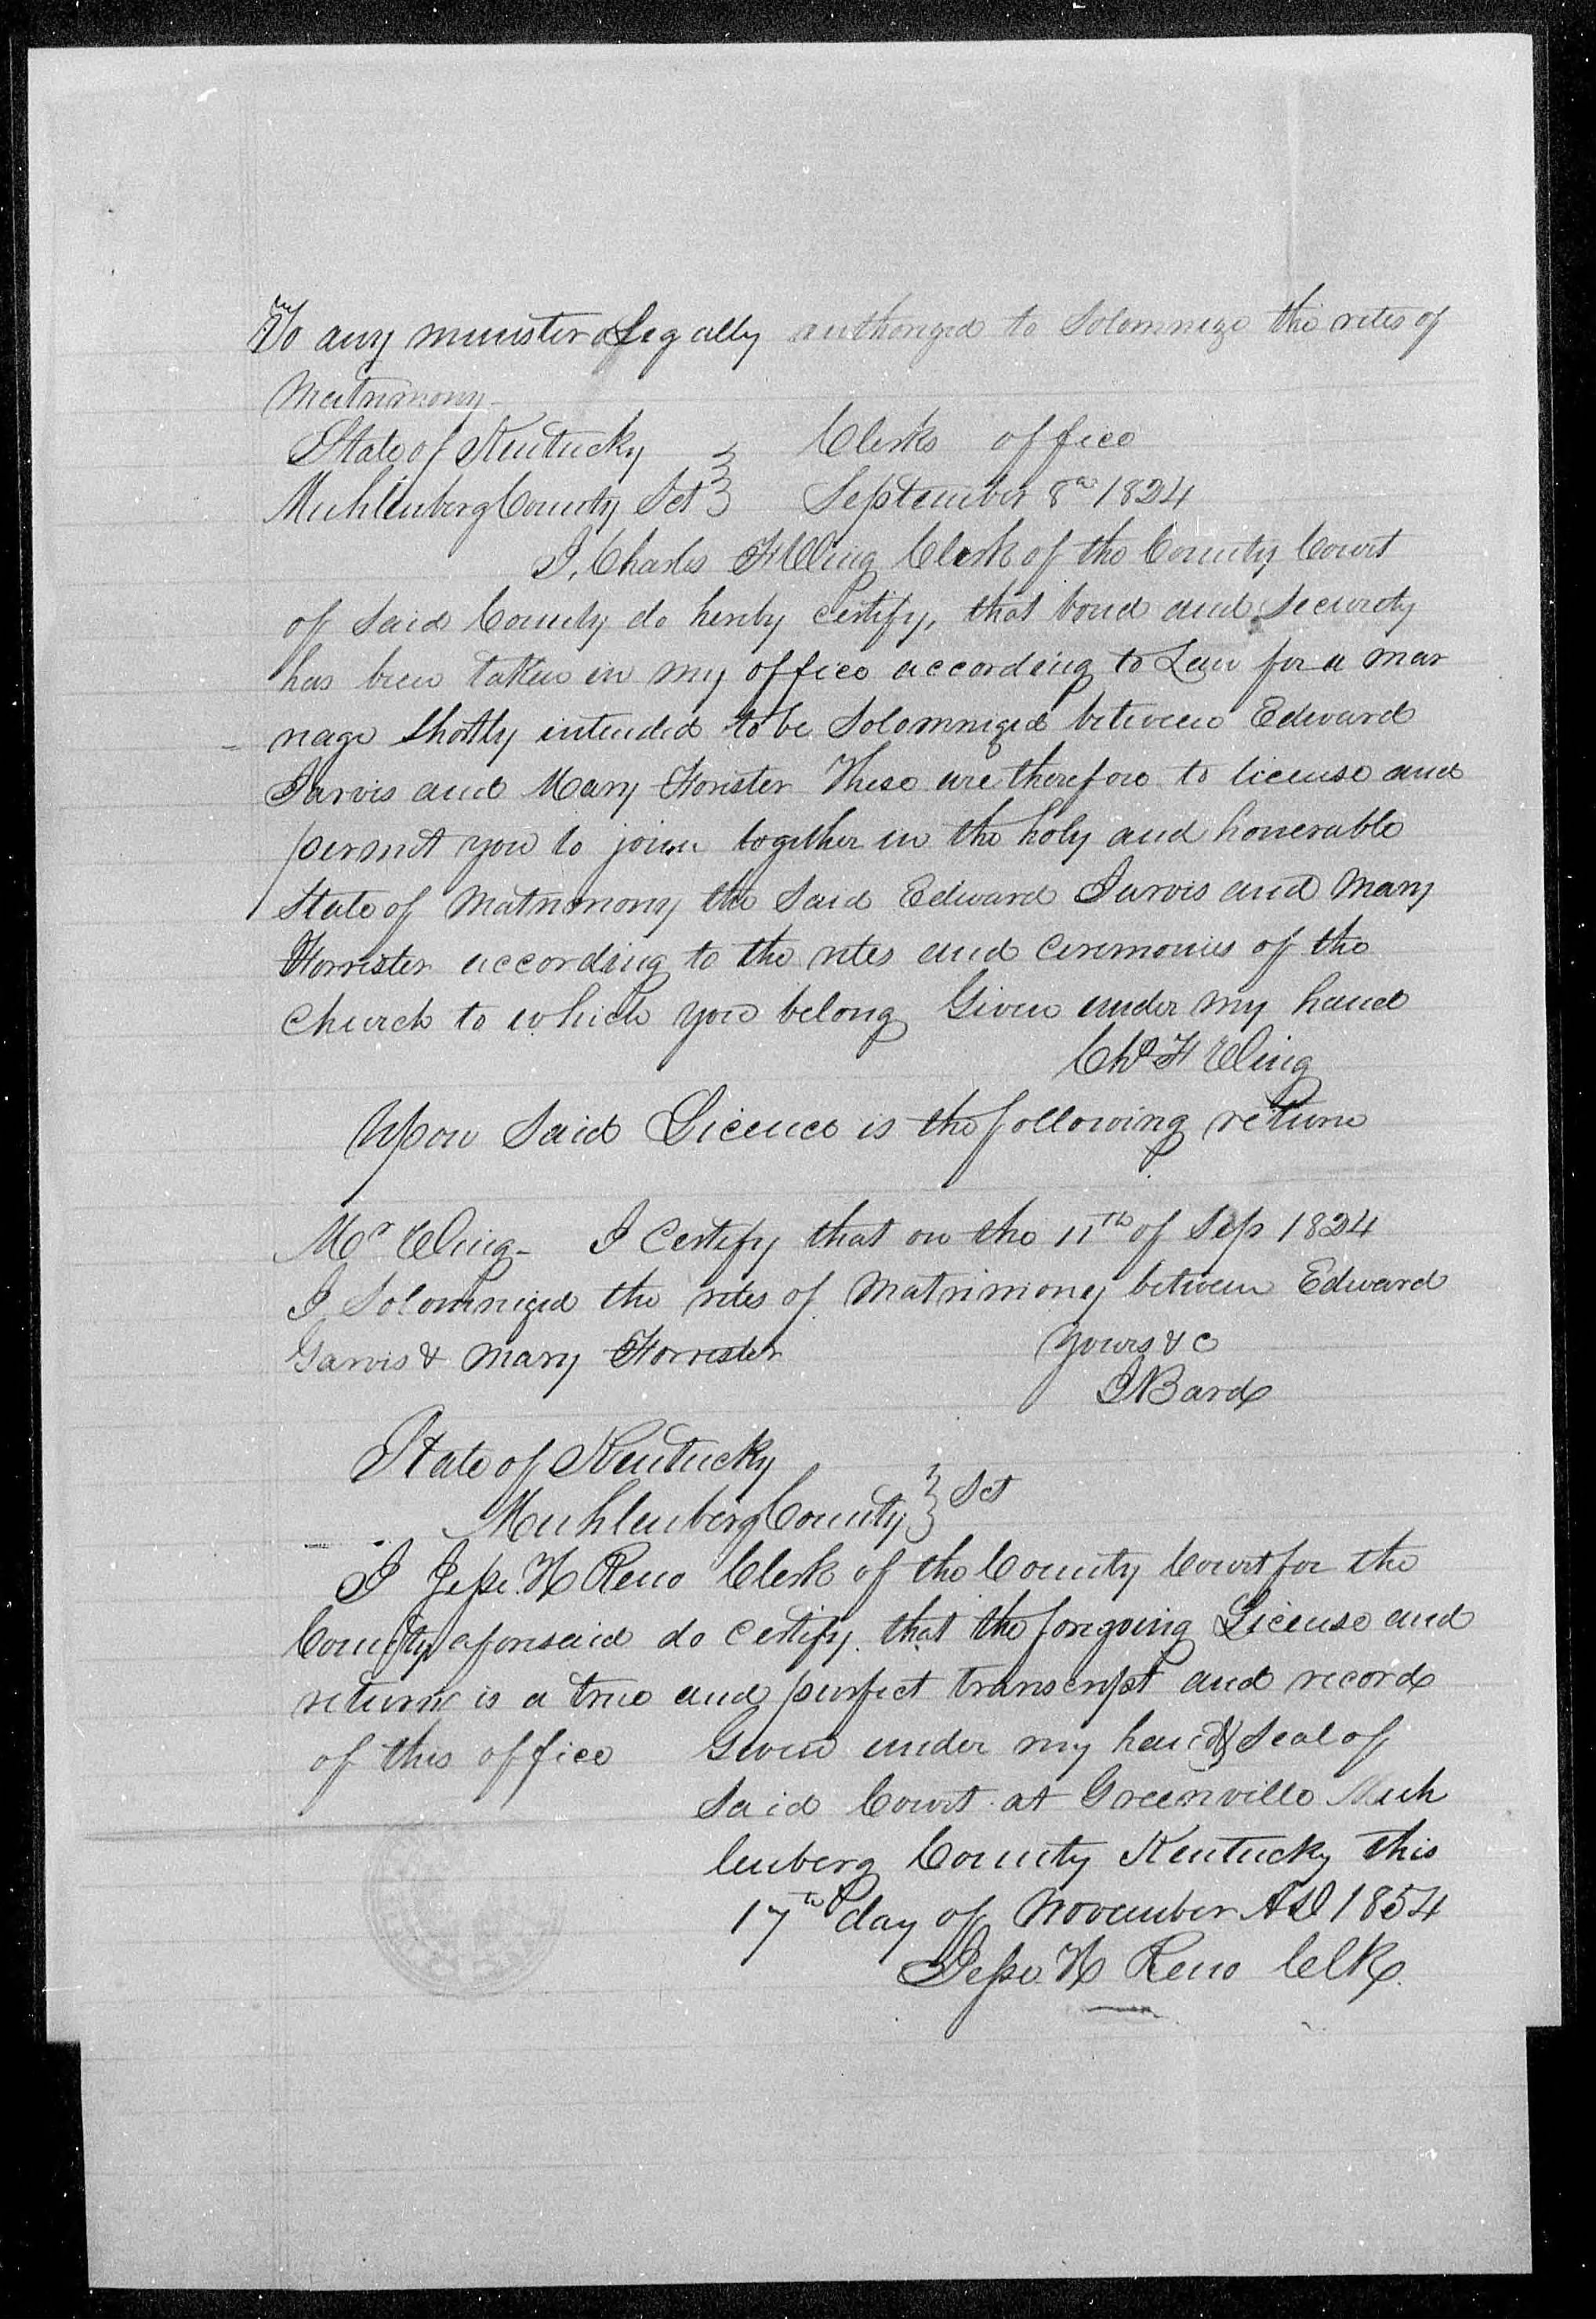 To any minister legally authorized to Solomnize the rites of
Matrimony
State of Kentucky } Clerks office
Muhlenberg County Sct } September 8th 1824
I, Charles F Wing Clerk of the County Court
of Said County do hereby certify, that bond and Security
has been taken in my office according to Law for a mar
riage Shortly intended to be Solomnized between Edward
Jarvis and Mary Forister These are therefore to license and
permit you to join together in the holy and honerable
State of Matrimony the Said Edward Jarvis and Mary
Forrister according to the rites and ceremonies of the
Church to which you belong Given under my hand
Chs F Wing
Upon Said Licence is the following return
Mr Wing - I Certify that on the 11th of Sep 1824
I Solomnized the rites of Matrimony between Edward
Garvis & Mary Forrester Yours &c
J Bard
State of Kentucky
Muhlenberg County } Sct
I Jesse H Reno Clerk of the County Court for the
County aforesaid do certify that the foregoing License and
return is a true and perfect transcript and record
of this office Given under my hand & Seal of
Said Court at Greenville Muh
lenberg County Kentucky this
17th day of November AD 1854
Jesse H Reno Clk